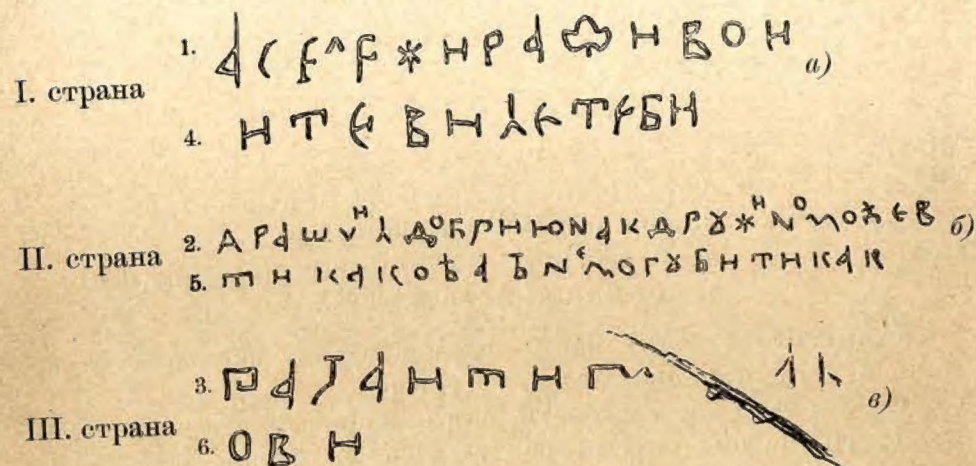 I. страна
1. АСЄЛЄЖНРАДНВОН а)
4. НТЄВНЋЄТЄБН
II. страна
2. ДРАШЧНЋДОБРНЮNАКДРꙊЖНNОМОѢЄВ б)
5. ТНКАКОѢАЪNЄМОГꙊБНТНКАК
III. страна
3. в)
6. ОВН